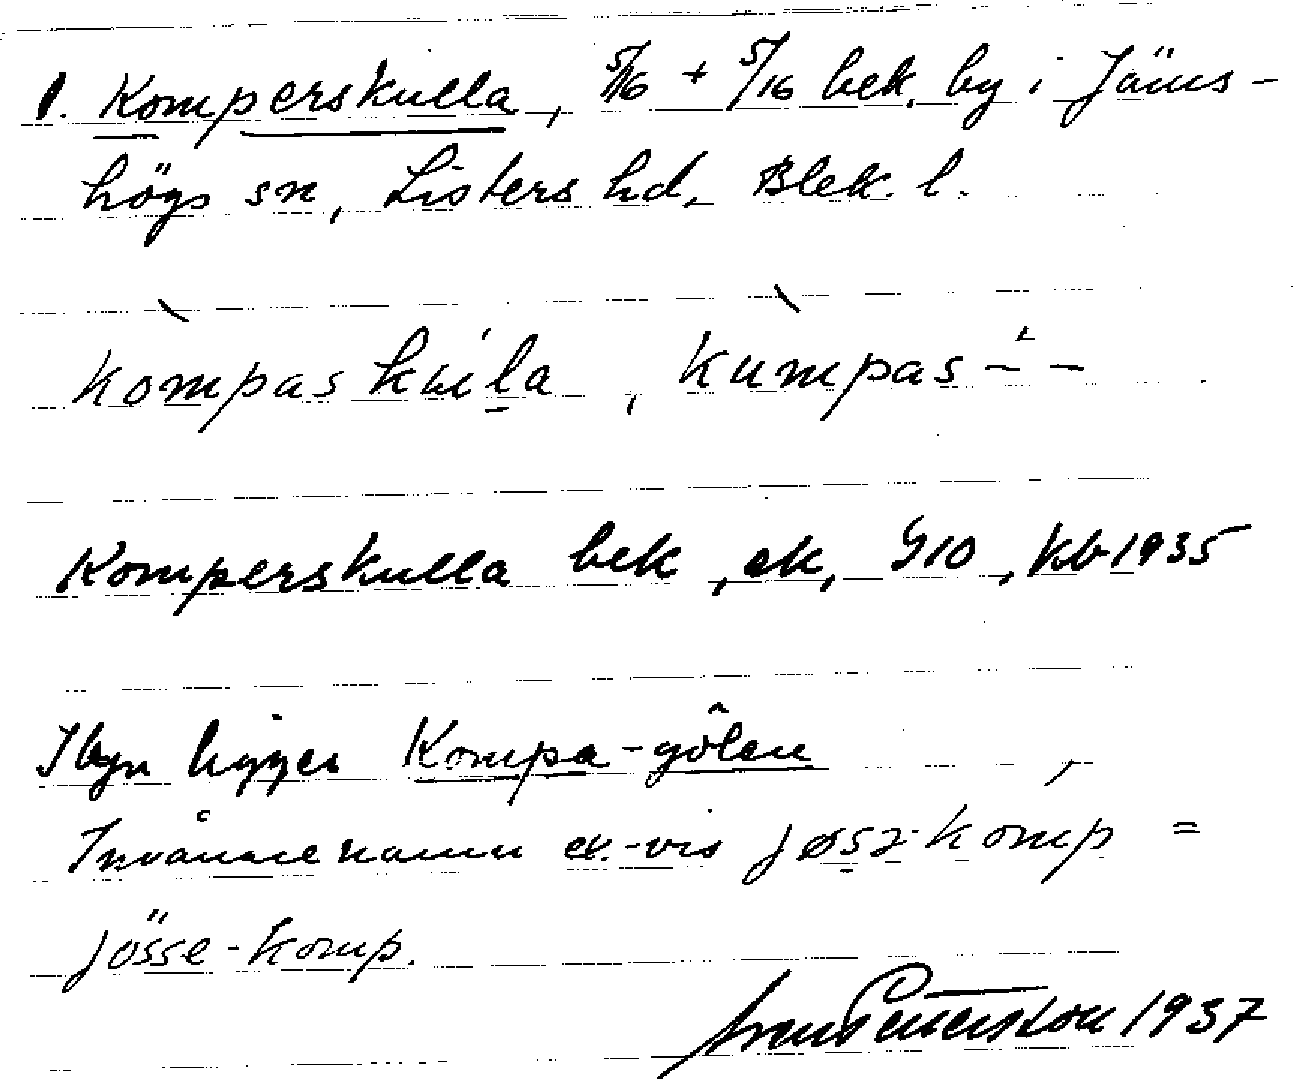 1. Komperskulla, 5/16 + 5/16 bek. by i Jäms-
högs sn, Listers hd, Blek. l.
kòmpasku̍l̠a, kùmpas- ̍ -
Komperskulla bek, ek, G10, Kb 1935
I byn ligger Kompa-gölen
Invånarenamn ex.-vis jøsə-komp =
jösse-komp.
Sven Petersson 1937